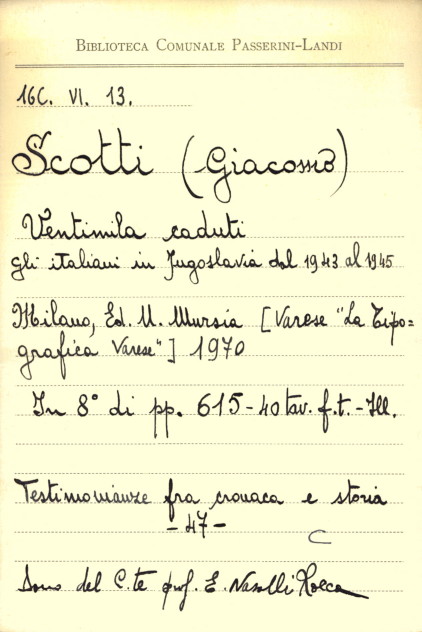 BIBLIOTECA COMUNALE PASSERINI-LANDI
16C. VI. 13.
Scotti (Giacomo)
Ventimila caduti
gli italiani in Jugoslavia dal 1943 al 1945
Milano, Ed. U. Mursia [Varese "La Tipo=
grafica Varese"] 1970
In 8° di pp. 615-40 tav. f.t.-Ill.
Testimonianze fra cronaca e storia
- 47 -
C
Dono del C.te prof. E. Nasalli Rocca